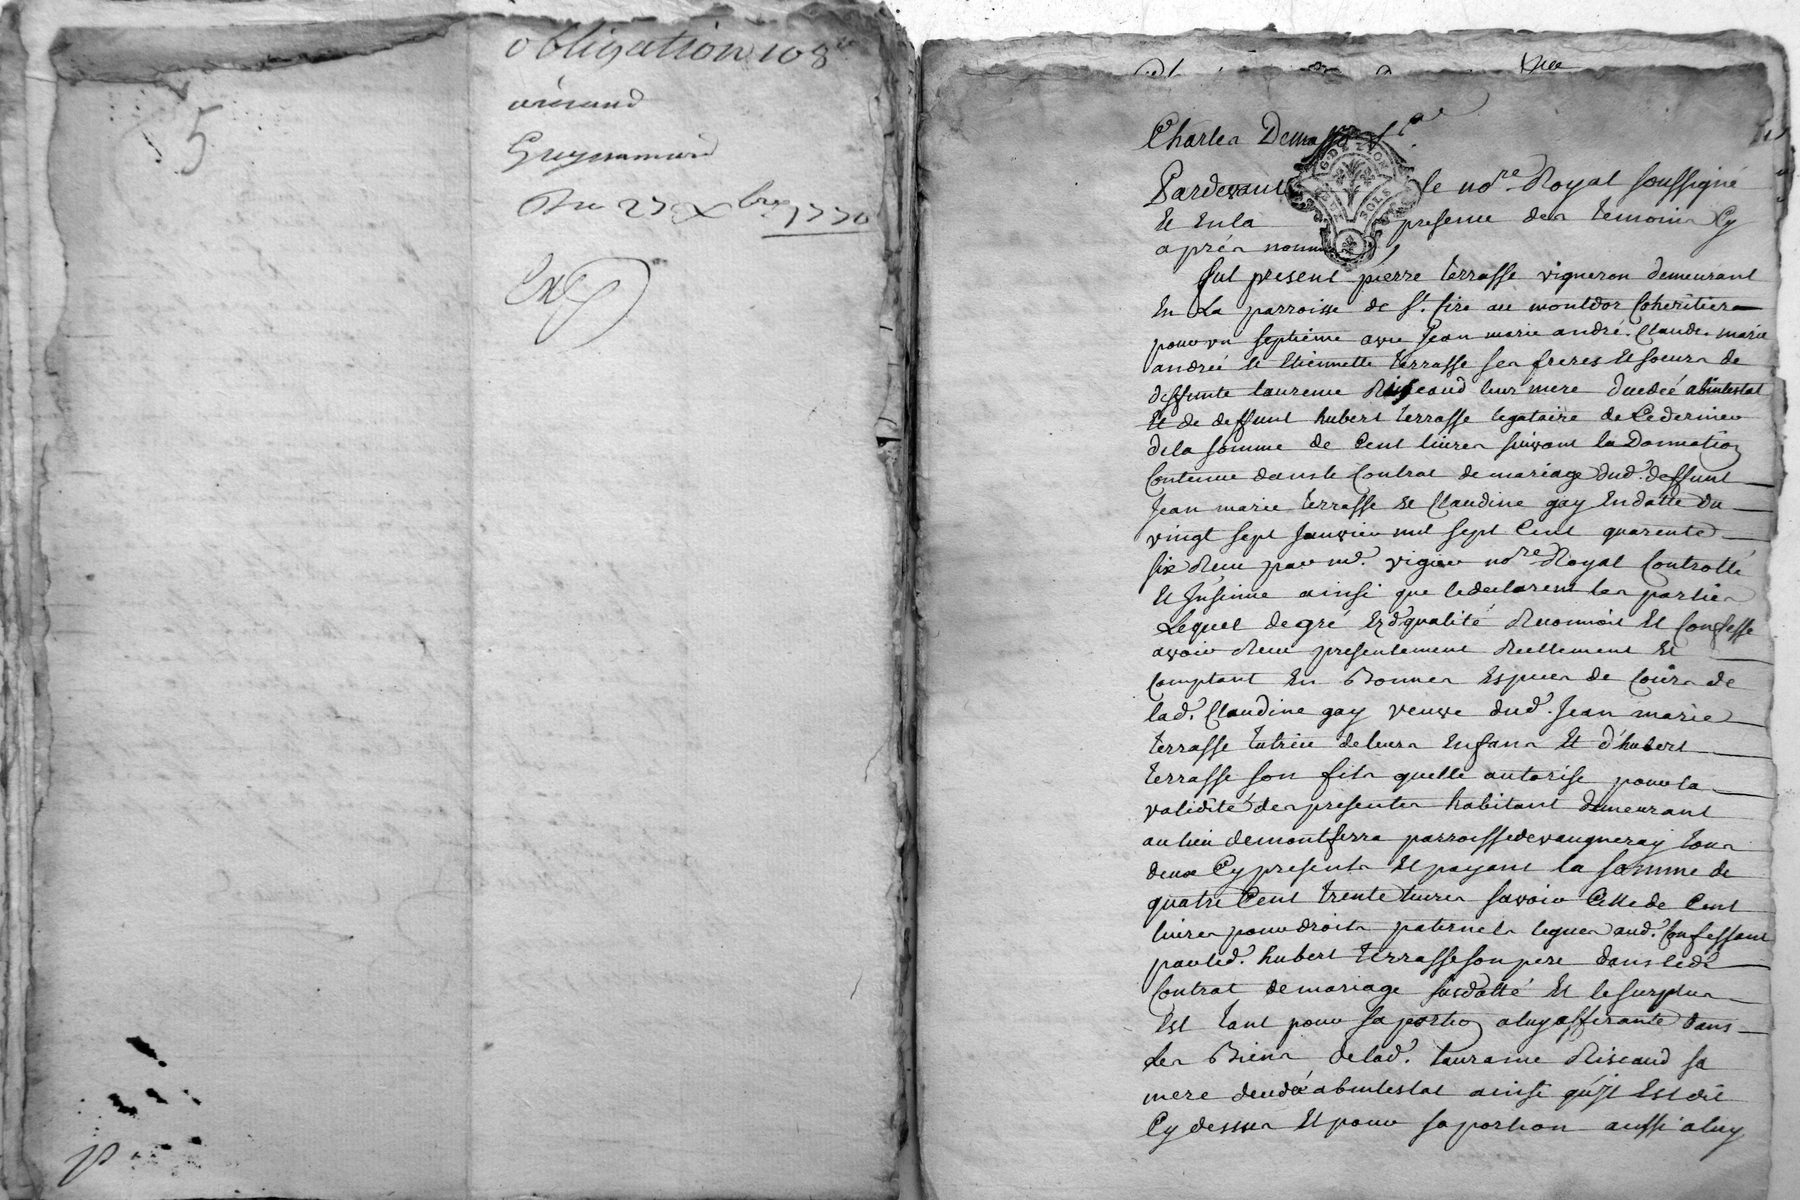 obligation 108
5
Greyssamard
Du 27 Xbre 1770
Charles Demasse
G. DE LYON
SOLS
Pardevant le nore Royal soussigné
Et En la presence des temoins Cy
après nommés
fut present pierre terrasse vigneron demeurant
En La parroisse de St. Cire au montdor Coheritier
pour un septieme avec Jean marie andré Claude marie
andrée et Etiennette terrasse ses freres Et soeurs de
deffunte laurence Riscaud leur mere decedeé abintestat
Et de deffunt hubert terrasse legataire de Ce dernier
de la somme de Cent livres suivant la Donnation
Contenue dans le Contrat de mariage dud. deffunt
Jean marie terrasse et Claudine gay En datte du
vingt sept Janvier mil sept Cent quarente
six Receu par me. vigier nore Royal Controllé
Et Insinué ainsi que le declarent les parties
Lequel de gré Esd. qualité Reconnoit Et Confesse
avoir Receu presentement Reellement Et
Comptant En Bonnes Especes de Cours de
lad. Claudine gay veuve dud. Jean marie
terrasse tutrice de leurs Enfans Et d'hubert
terrasse son fils quelle autorise pour la
validité des presentes habitant demeurant
au lieu de montferra parroisse de vaugneray tous
deux Cy presents Et payant la somme de
quatre Cent trente livres savoir Celle de Cent
livres pour droits paternels legués aud. Confessant
par led. hubert terrasse son pere dans led.
Contrat de mariage susdatté Et le surplus
Est tant pour sa portion a luy afferante dans
Les Biens de lad. laurance Riscaud sa
mere decedeé abintestat ainsi qu'il Est dit
Cy dessus Et pour sa portion aussi a luy